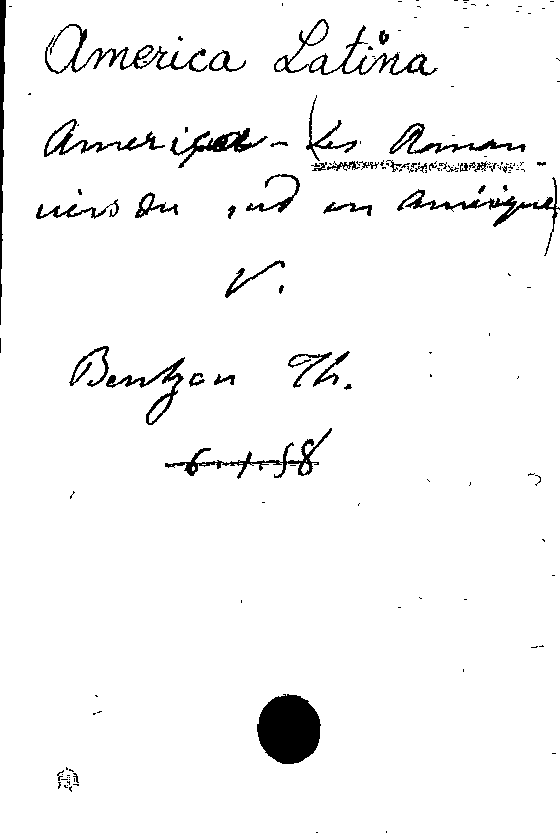 America Latina
America - (Les Roman-
ciers du sud en Amérique)
V.
Bentzon Th.
6.1.58